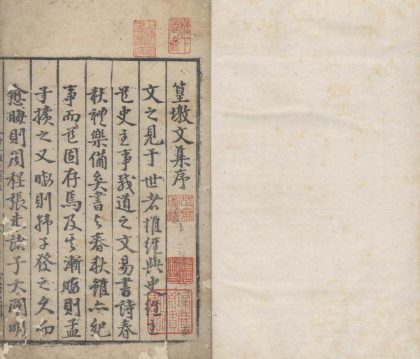 篁墩文集序
文之見于世者惟經與史經主
道史主事我道之文易書詩春
秋禮樂備矣書與春秋雖亦紀
事而道固存焉及其漸晦則孟
子擴之又晦則揚子發之久而
愈晦則周程張朱諸子大闡明